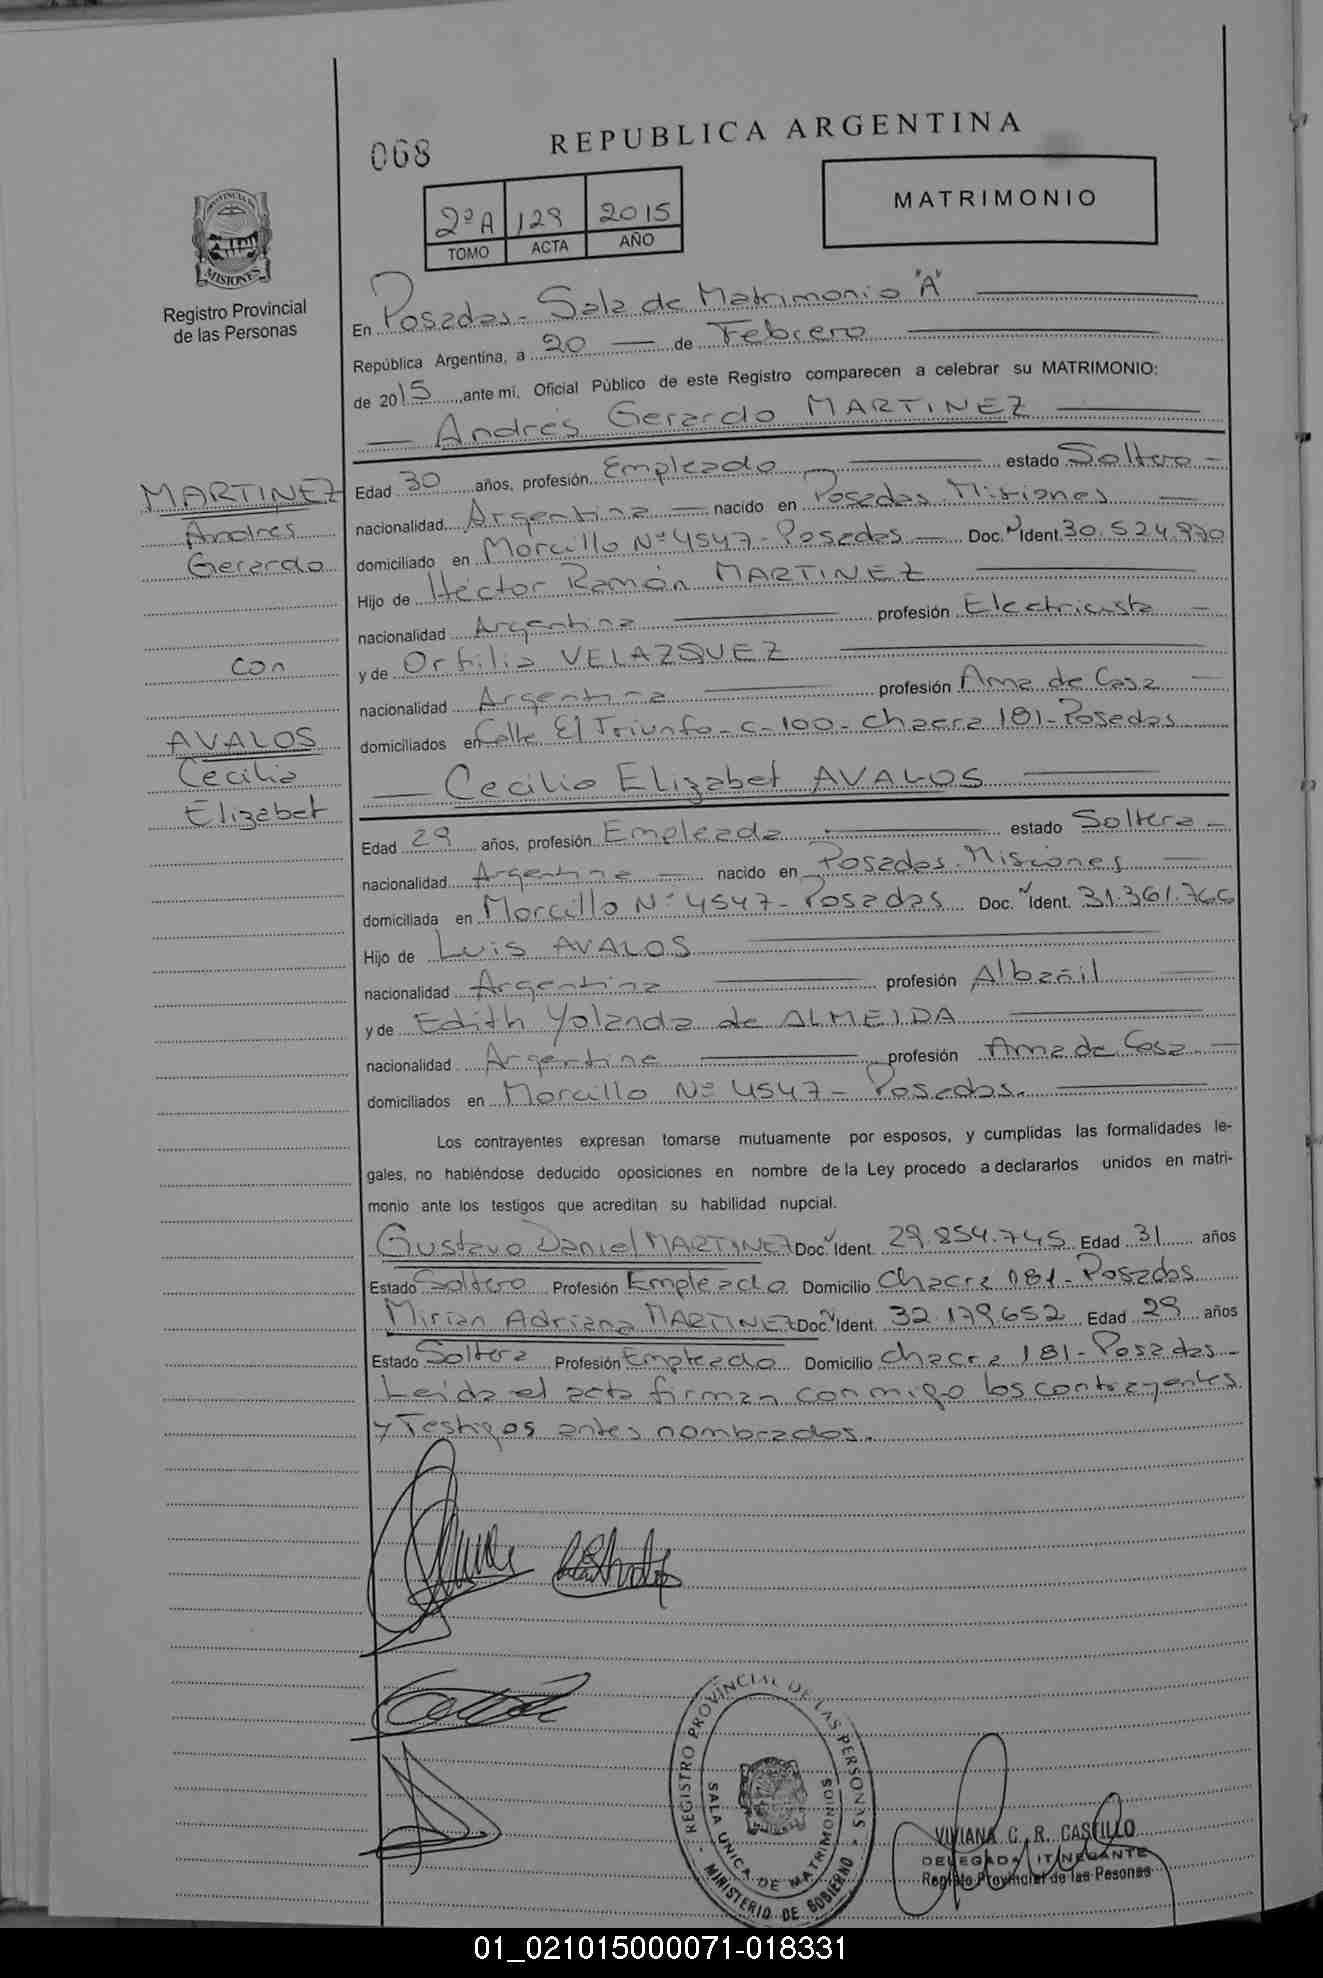 068
REPUBLICA ARGENTINA
2º A 129 2015
TOMO ACTA AÑO
MATRIMONIO
PROVINCIA DE
MISIONES
Registro Provincial
de las Personas
En Posadas - Sala de Matrimonio "A"
República Argentina, a 20 — de Febrero
de 2015, ante mi, Oficial Público de este Registro comparecen a celebrar su MATRIMONIO:
— Andrés Gerardo MARTINEZ —
MARTINEZ
Andres
Gerardo
con
AVALOS
Cecilia
Elizabet
Edad 30 años, profesión Empleado — estado Soltero -
nacionalidad Argentina — nacido en Posadas Misiones —
domiciliado en Morcillo Nº 4547 - Posadas — Doc. Ident. 30.524.970
Hijo de Héctor Ramón MARTINEZ —
nacionalidad Argentina — profesión Electricista —
y de Ortilia VELAZQUEZ —
nacionalidad Argentina — profesión Ama de Casa —
domiciliados en Calle El Triunfo - c-100 - chacra 181 - Posadas
— Cecilia Elizabet AVALOS —
Edad 29 años, profesión Empleada — estado Soltera -
nacionalidad Argentina — nacido en Posadas - Misiones —
domiciliada en Morcillo Nº 4547 - Posadas Doc. Ident. 31.361.766
Hijo de Luis AVALOS —
nacionalidad Argentina — profesión Albañil —
y de Edith Yolanda de ALMEIDA —
nacionalidad Argentina — profesión Ama de Casa —
domiciliados en Morcillo Nº 4547 - Posadas. —
Los contrayentes expresan tomarse mutuamente por esposos, y cumplidas las formalidades le-
gales, no habiéndose deducido oposiciones en nombre de la Ley procedo a declararlos unidos en matri-
monio ante los testigos que acreditan su habilidad nupcial.
Gustavo Daniel MARTINEZ Doc. Ident. 29.854.745 Edad 31 años
Estado Soltero Profesión Empleado Domicilio Chacra 181 - Posadas
Mirian Adriana MARTINEZ Doc. Ident. 32.179.652 Edad 29 años
Estado Soltera Profesión Empleado Domicilio Chacra 181 - Posadas -
Leida el acta firman conmigo los contrayentes
y Testigos antes nombrados.
REGISTRO PROVINCIAL DE LAS PERSONAS
SALA UNICA DE MATRIMONIOS
MINISTERIO DE GOBIERNO
VIVIANA C. R. CASTILLO
DELEGADA ITINERANTE
Registro Provincial de las Pesonas
01_021015000071-018331